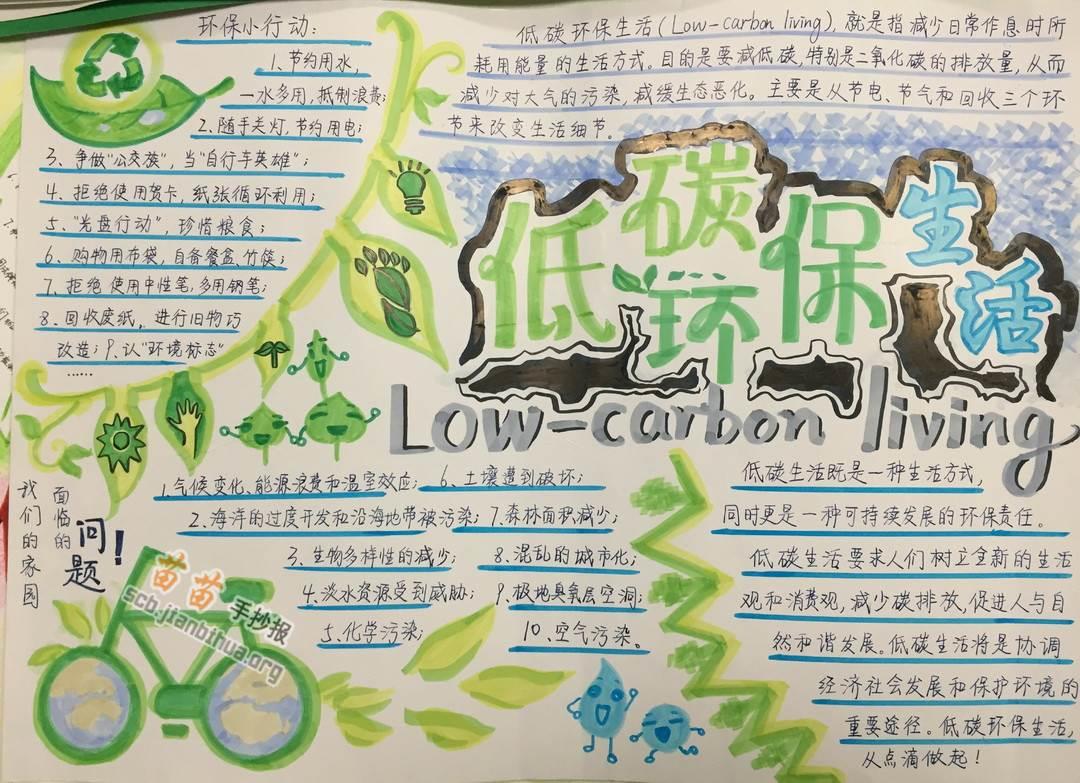 环保小行动：
1、节约用水，
一水多用，抵制浪费；
2、随手关灯，节约用电；
3、争做"公交族"，当"自行车英雄"；
4、拒绝使用贺卡，纸张循环利用；
5、"光盘行动"，珍惜粮食；
6、购物用布袋，自备餐盒、竹筷；
7、拒绝使用中性笔，多用钢笔；
8、回收废纸，进行旧物巧
改造；9、认"环境标志"
……
低碳环保生活(Low-carbon living)，就是指减少日常作息时所
耗用能量的生活方式。目的是要减低碳，特别是二氧化碳的排放量，从而
减少对大气的污染，减缓生态恶化。主要是从节电、节气和回收三个环
节来改变生活细节。
低碳环保生活
Low-carbon living
我们的家园
面临的
问题！
1、气候变化、能源浪费和温室效应；
2、海洋的过度开发和沿海地带被污染；
3、生物多样性的减少；
4、淡水资源受到威胁；
5、化学污染；
6、土壤遭到破坏；
7、森林面积减少；
8、混乱的城市化；
9、极地臭氧层空洞；
10、空气污染。
低碳生活既是一种生活方式，
同时更是一种可持续发展的环保责任。
低碳生活要求人们树立全新的生活
观和消费观，减少碳排放，促进人与自
然和谐发展。低碳生活将是协调
经济社会发展和保护环境的
重要途径。低碳环保生活，
从点滴做起！
苗苗手抄报
scb.jianbihua.org